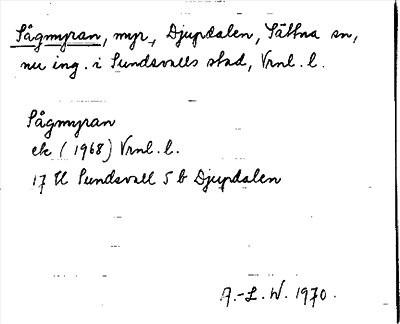 Sågmyran, myr, Djupdalen, Sättna sn,
nu ing. i Sundsvalls stad, Vrnl. l.
Sågmyran
ek (1968) Vrnl. l.
17 H Sundsvall 5 b Djupdalen
A.-L. W. 1970.